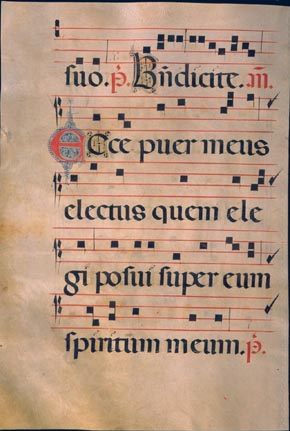 suo. p̃. Bñdicite. m̃.
Ecce puer meus
electus quem ele
gi posui super eum
spiritum meum. p̃.